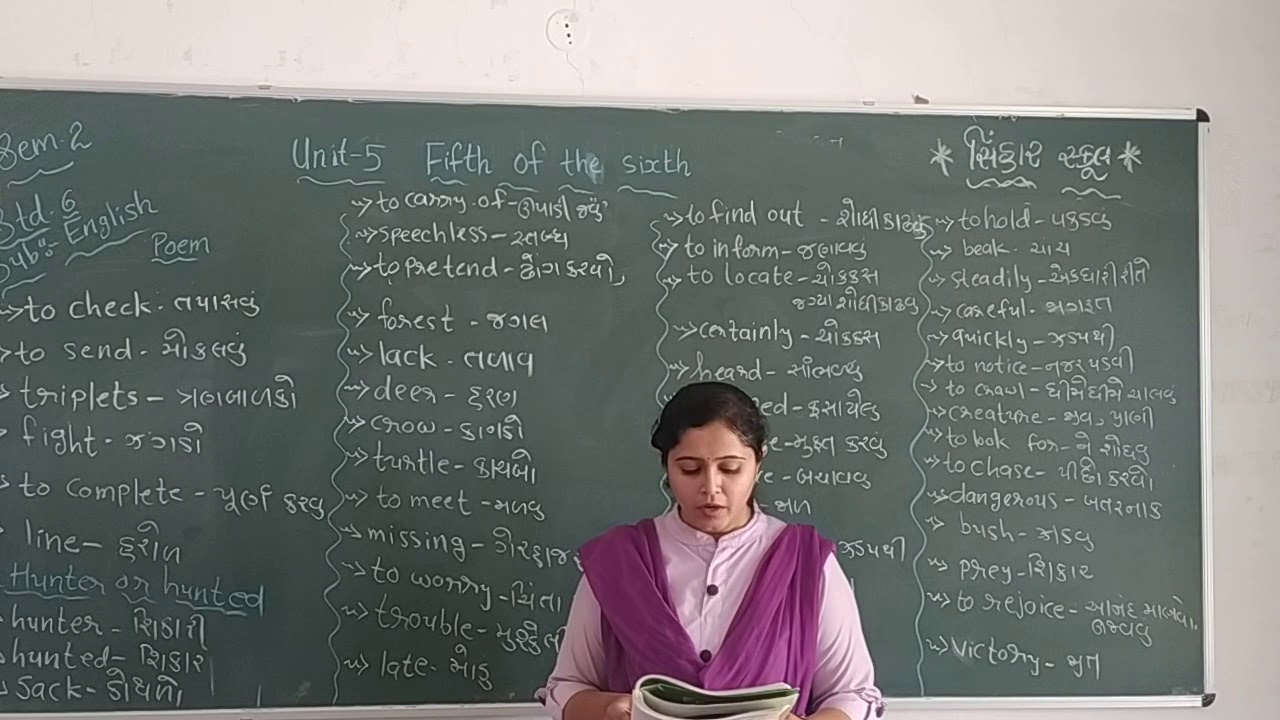 Sem. 2
Std. 6
Sub: English
Unit-5 Fifth of the sixth
* સિંકાર સ્કૂલ *
Poem
to check - તપાસવું
to send - મોકલવું
triplets - ત્રણ બાળકો
fight - ઝગડો
to complete - પૂર્ણ કરવુ
line - હરોળ
Hunter or hunted
hunter - શિકારી
hunted - શિકાર
Sack - કોથળો
to carry of - ઉપાડી જવું
speechless - સ્તબ્ધ
to pretend - ઢોંગ કરવો,
forest - જંગલ
lack - તળાવ
deer - હરણ
crow - કાગડો
turtle - કાચબો
to meet - મળવુ
missing - ગેરહાજ
to worry - ચિંતા
trouble - મુશ્કેલી
late - મોડુ
to find out - શોધી કાઢવું
to inform - જણાવવું
to locate - ચોકકસ
જગ્યા શોધી કાઢવુ
certainly - ચોકકસ
heard - સાંભળ્યુ
ed - ફસાયેલુ
e - મુક્ત કરવુ
e - બચાવવુ
- જાળ
ઝડપથી
to hold - પકડવુ
beak - ચાંચ
steadily - એકધારી રીતે
careful - જાગૃત
quickly - ઝડપથી
to notice - નજર પડવી
to crawl - ધીમે ધીમે ચાલવું
creature - જીવ, પ્રાણી
to look for - ને શોધવુ
to chase - પીછો કરવો
dangerous - ખતરનાક
bush - ઝાડવુ
prey - શિકાર
to rejoice - આનંદ માણવો,
ઉજવવુ
victory - જીત